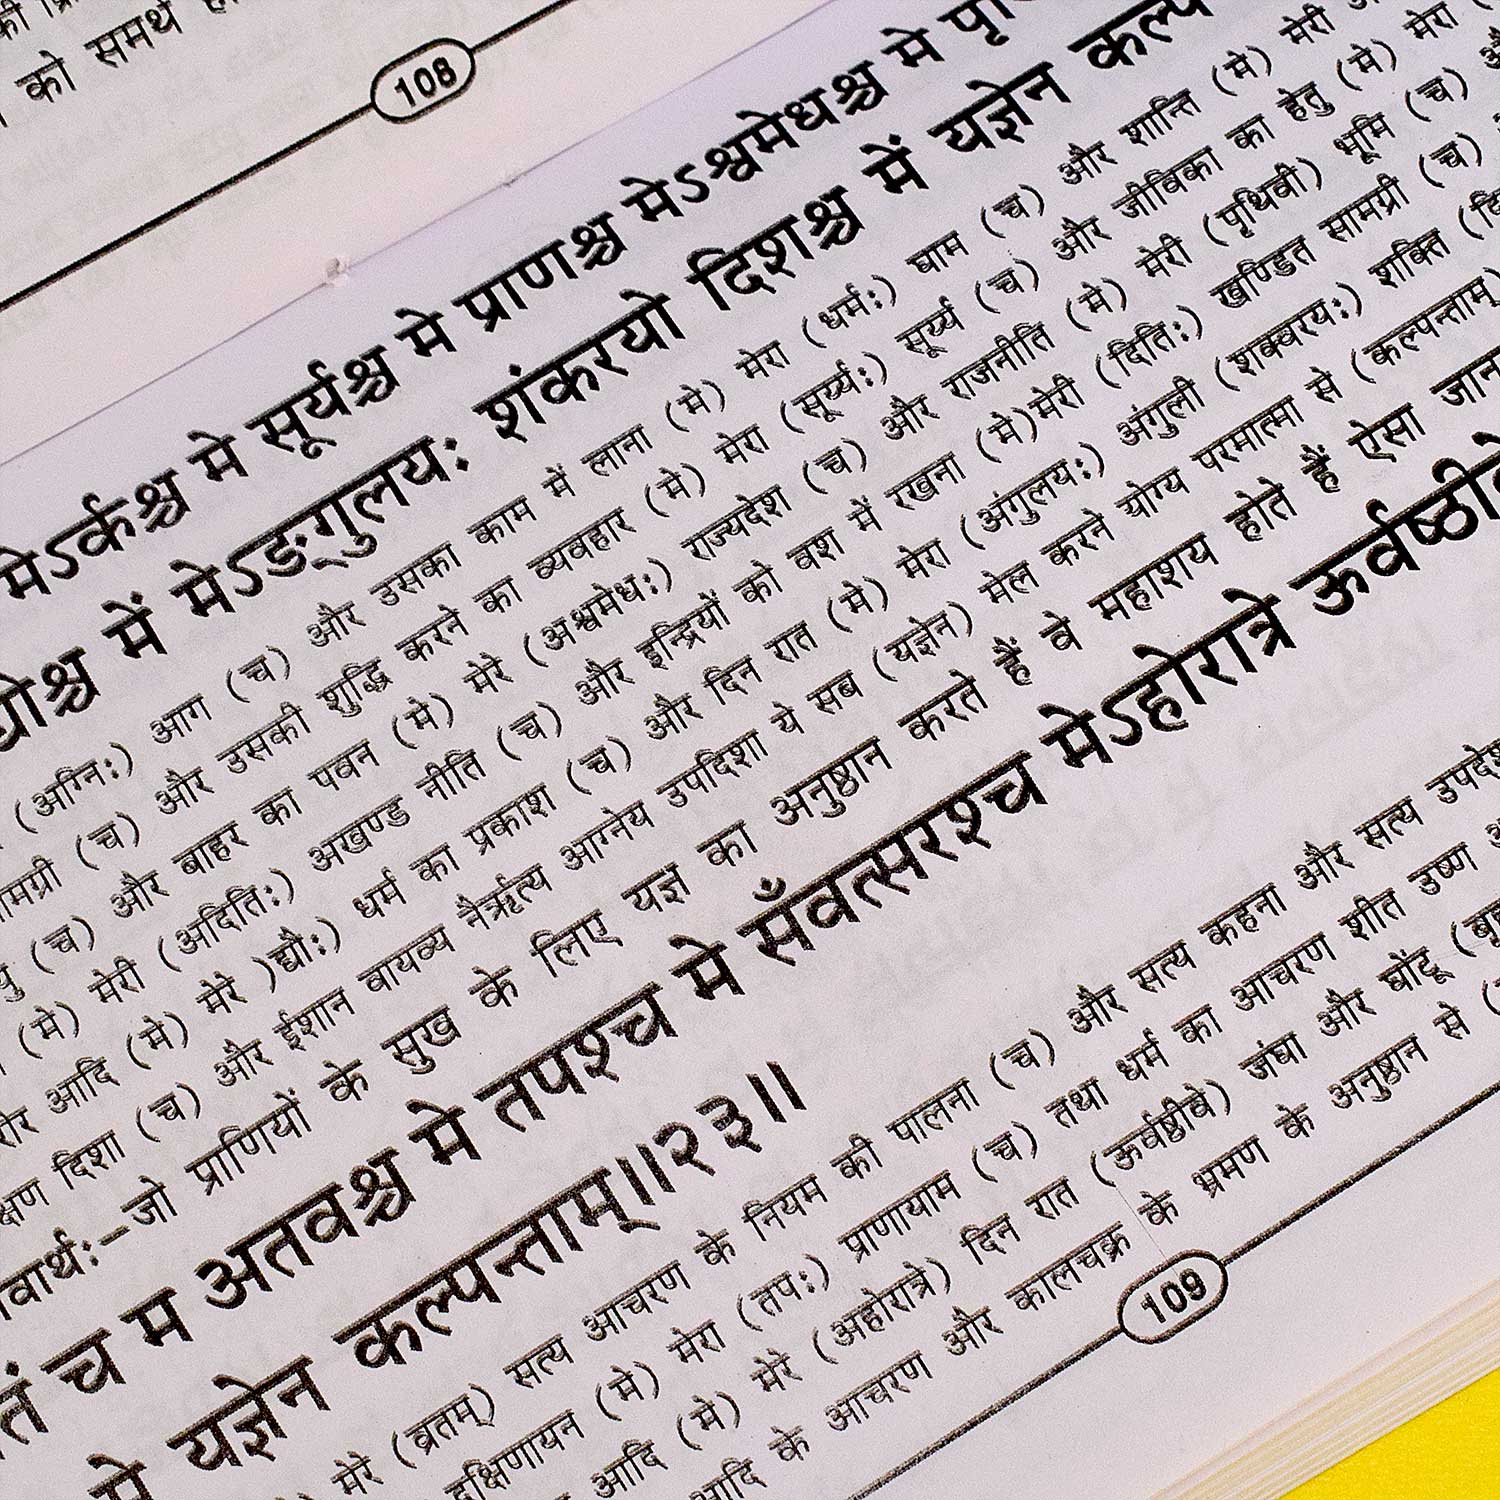 को समर्थ
108
मेऽर्कश्च मे सूर्यश्च मे प्राणश्च मेऽश्वमेधश्च मे
में मेऽङ्गुलय: शंकरयो दिशश्च में यज्ञेन
(अग्नि:) आग (च) और उसका काम में लाना (मे) मेरा (धर्म:) घाम (च) और शान्ति (मे) मेरी
(च) और उसकी शुद्धि करने का व्यवहार (मे) मेरा (सूर्य्य:) सूर्य्य (च) और जीविका का हेतु (मे) मेरा
(च) और बाहर का पवन (मे) मेरे (अश्वमेध:) राज्यदेश (च) और राजनीति (मे) मेरी (पृथिवी) भूमि (च)
(मे) मेरी (अदिति:) अखण्ड नीति (च) और इन्द्रियों को वश में रखना (मे)मेरी (दिति:) खण्डित सामग्री (च)
आदि (मे) मेरे )द्यौ:) धर्म का प्रकाश (च) और दिन रात (मे) मेरा (अंगुलय:) अंगुली (शक्वरय:) शक्ति
दिशा (च) और ईशान वायव्य नैर्ऋत्य आग्नेय उपदिशा ये सब (यज्ञेन) मेल करने योग्य परमात्मा से (कल्पन्ताम्)
जो प्राणियों के सुख के लिए यज्ञ का अनुष्ठान करते हैं वे महाशय होते हैं ऐसा
च म अतवश्च मे तपश्च मे सँवत्सरश्च मेऽहोरात्रे
मे यज्ञेन कल्पन्ताम्॥२३॥
मेरे (व्रतम्) सत्य आचरण के नियम की पालना (च) और सत्य कहना और सत्य
दक्षिणायन (मे) मेरा (तप:) प्राणायाम (च) तथा धर्म का आचरण शीत उष्ण
आदि (मे) मेरे (अहोरात्रे) दिन रात (ऊर्वष्ठीवे) जंघा और घोंटू
आदि के आचरण और कालचक्र के भ्रमण के अनुष्ठान से
109